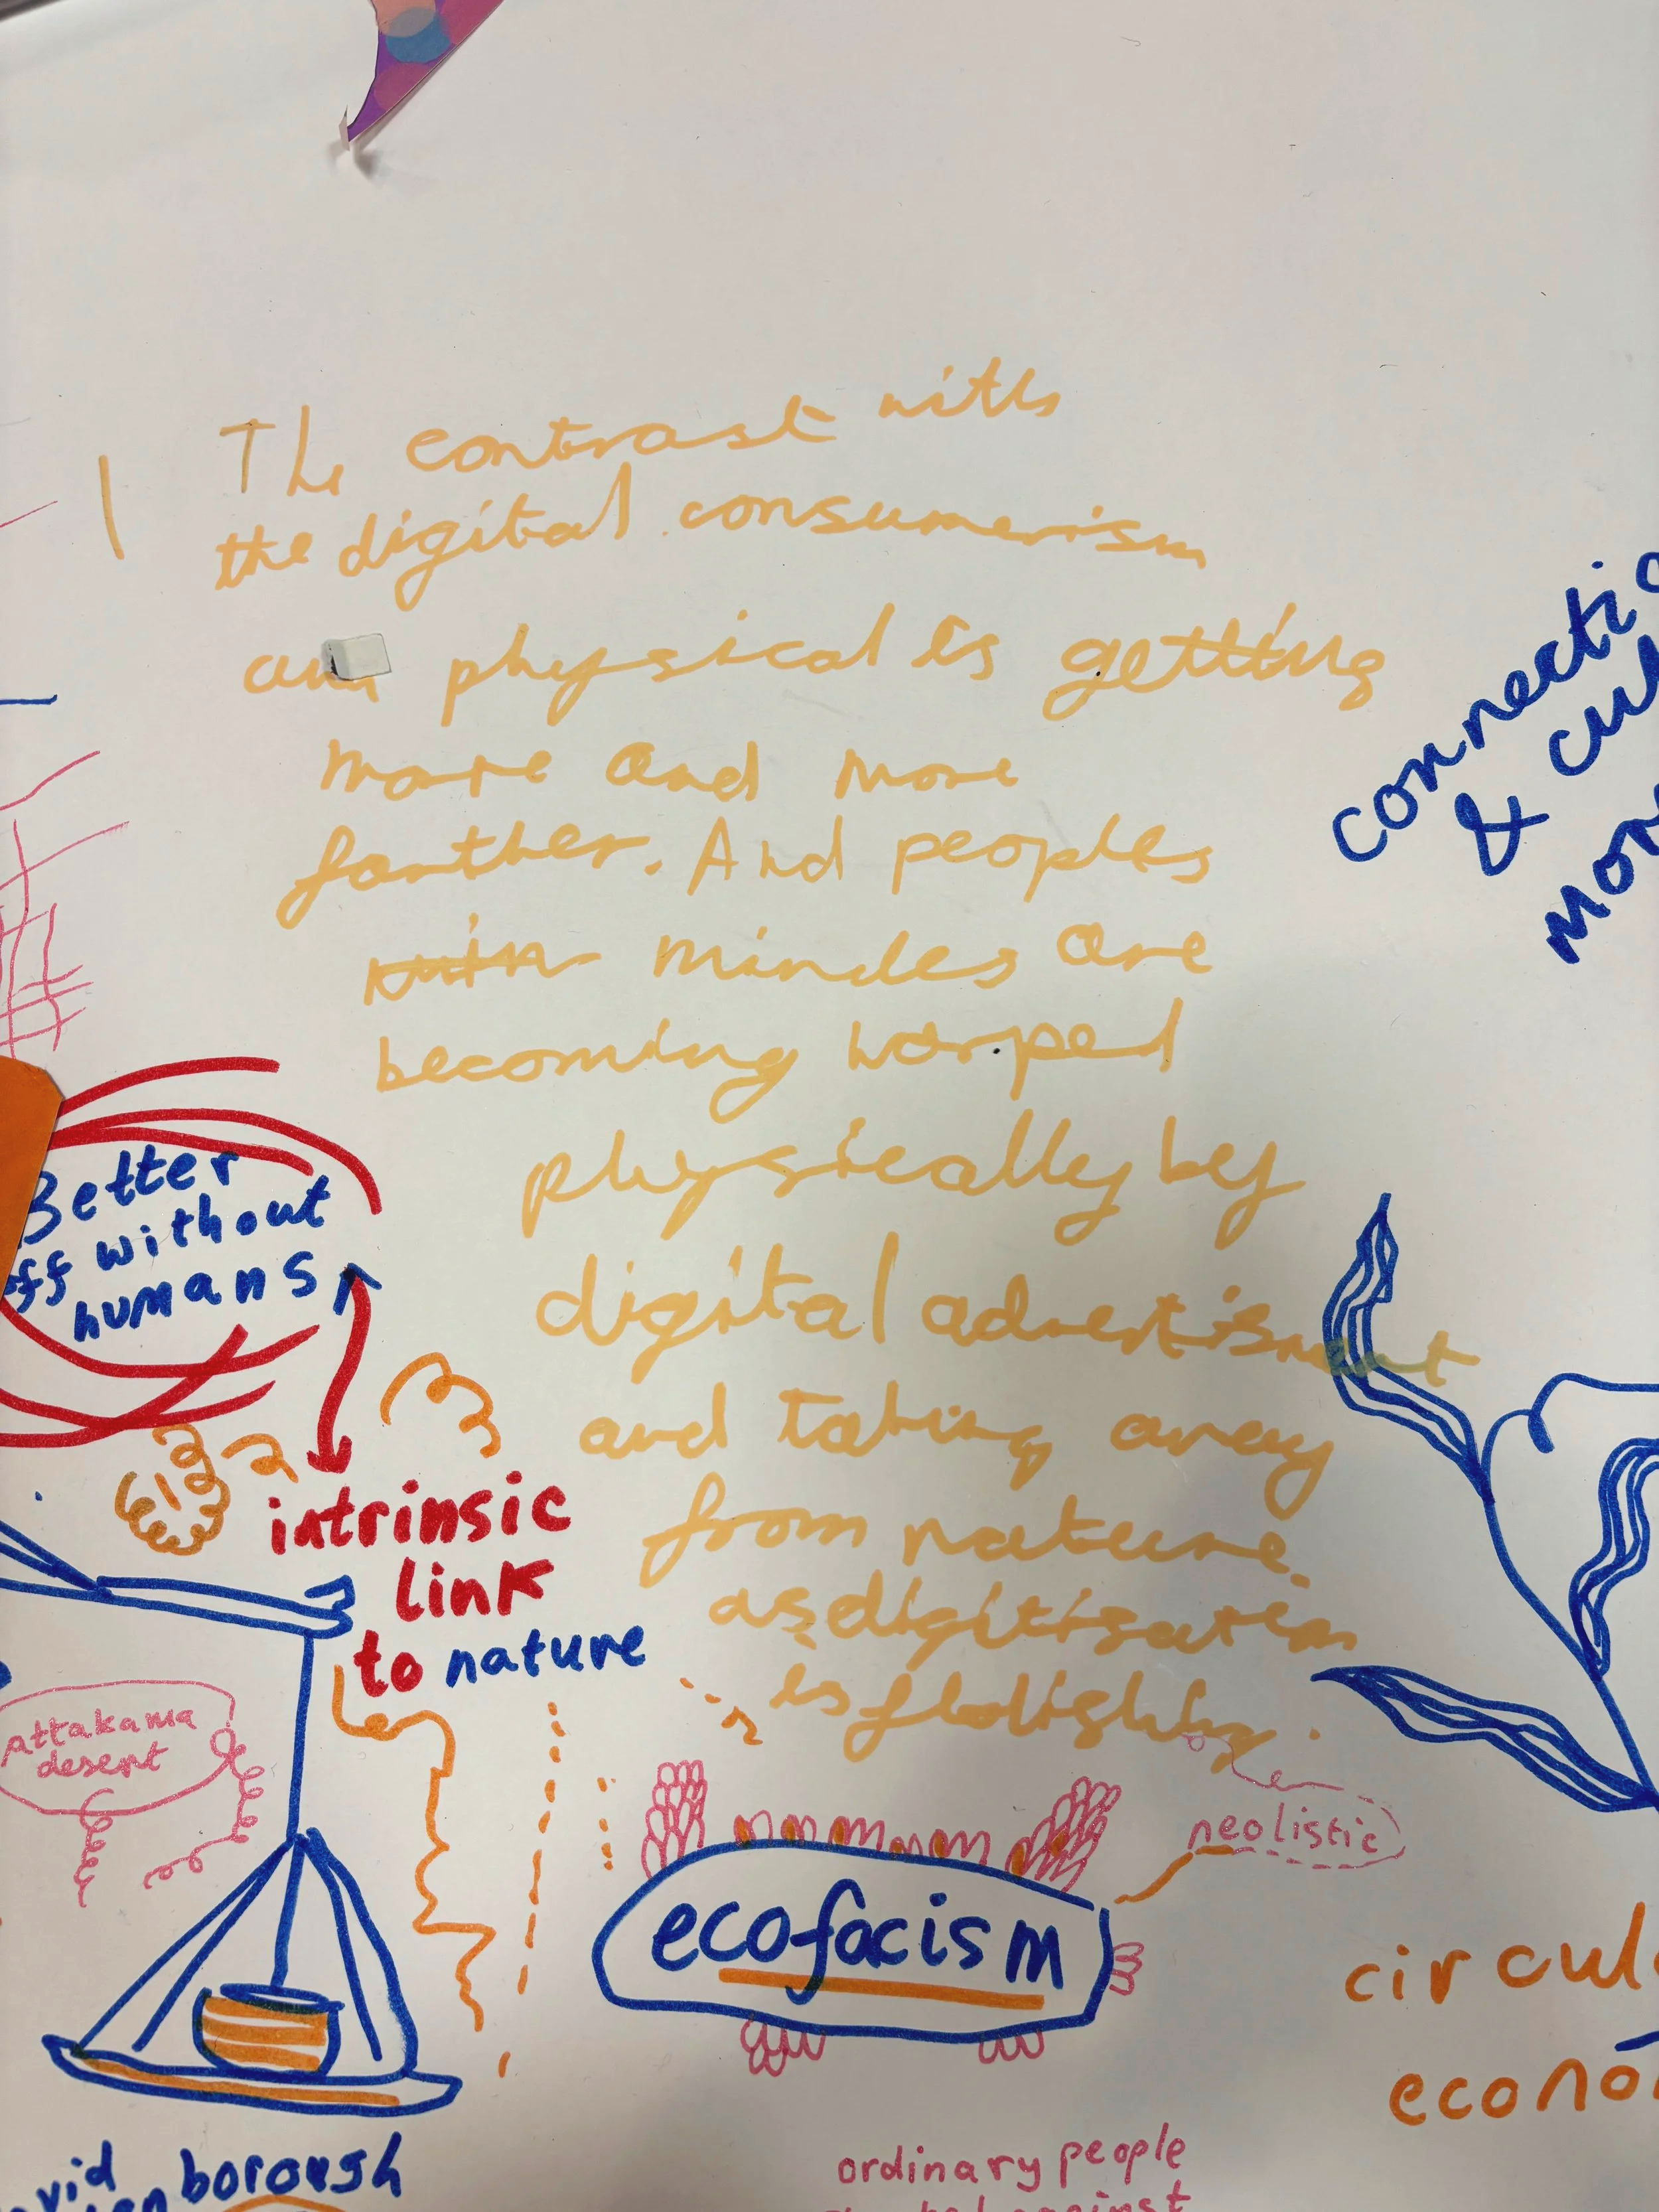 The contrast with
the digital consumerism
and physical is getting
more and more
farther. And peoples
mindes are
becoming worped
physically by
digital advertisment
and taking away
from nature.
as digitisation
is
connectio
& cul
mor
Better
off without
humans
intrinsic
link
to nature
attakama
desert
neolistic
ecofacism
circul
econo
vid
enborough
ordinary people